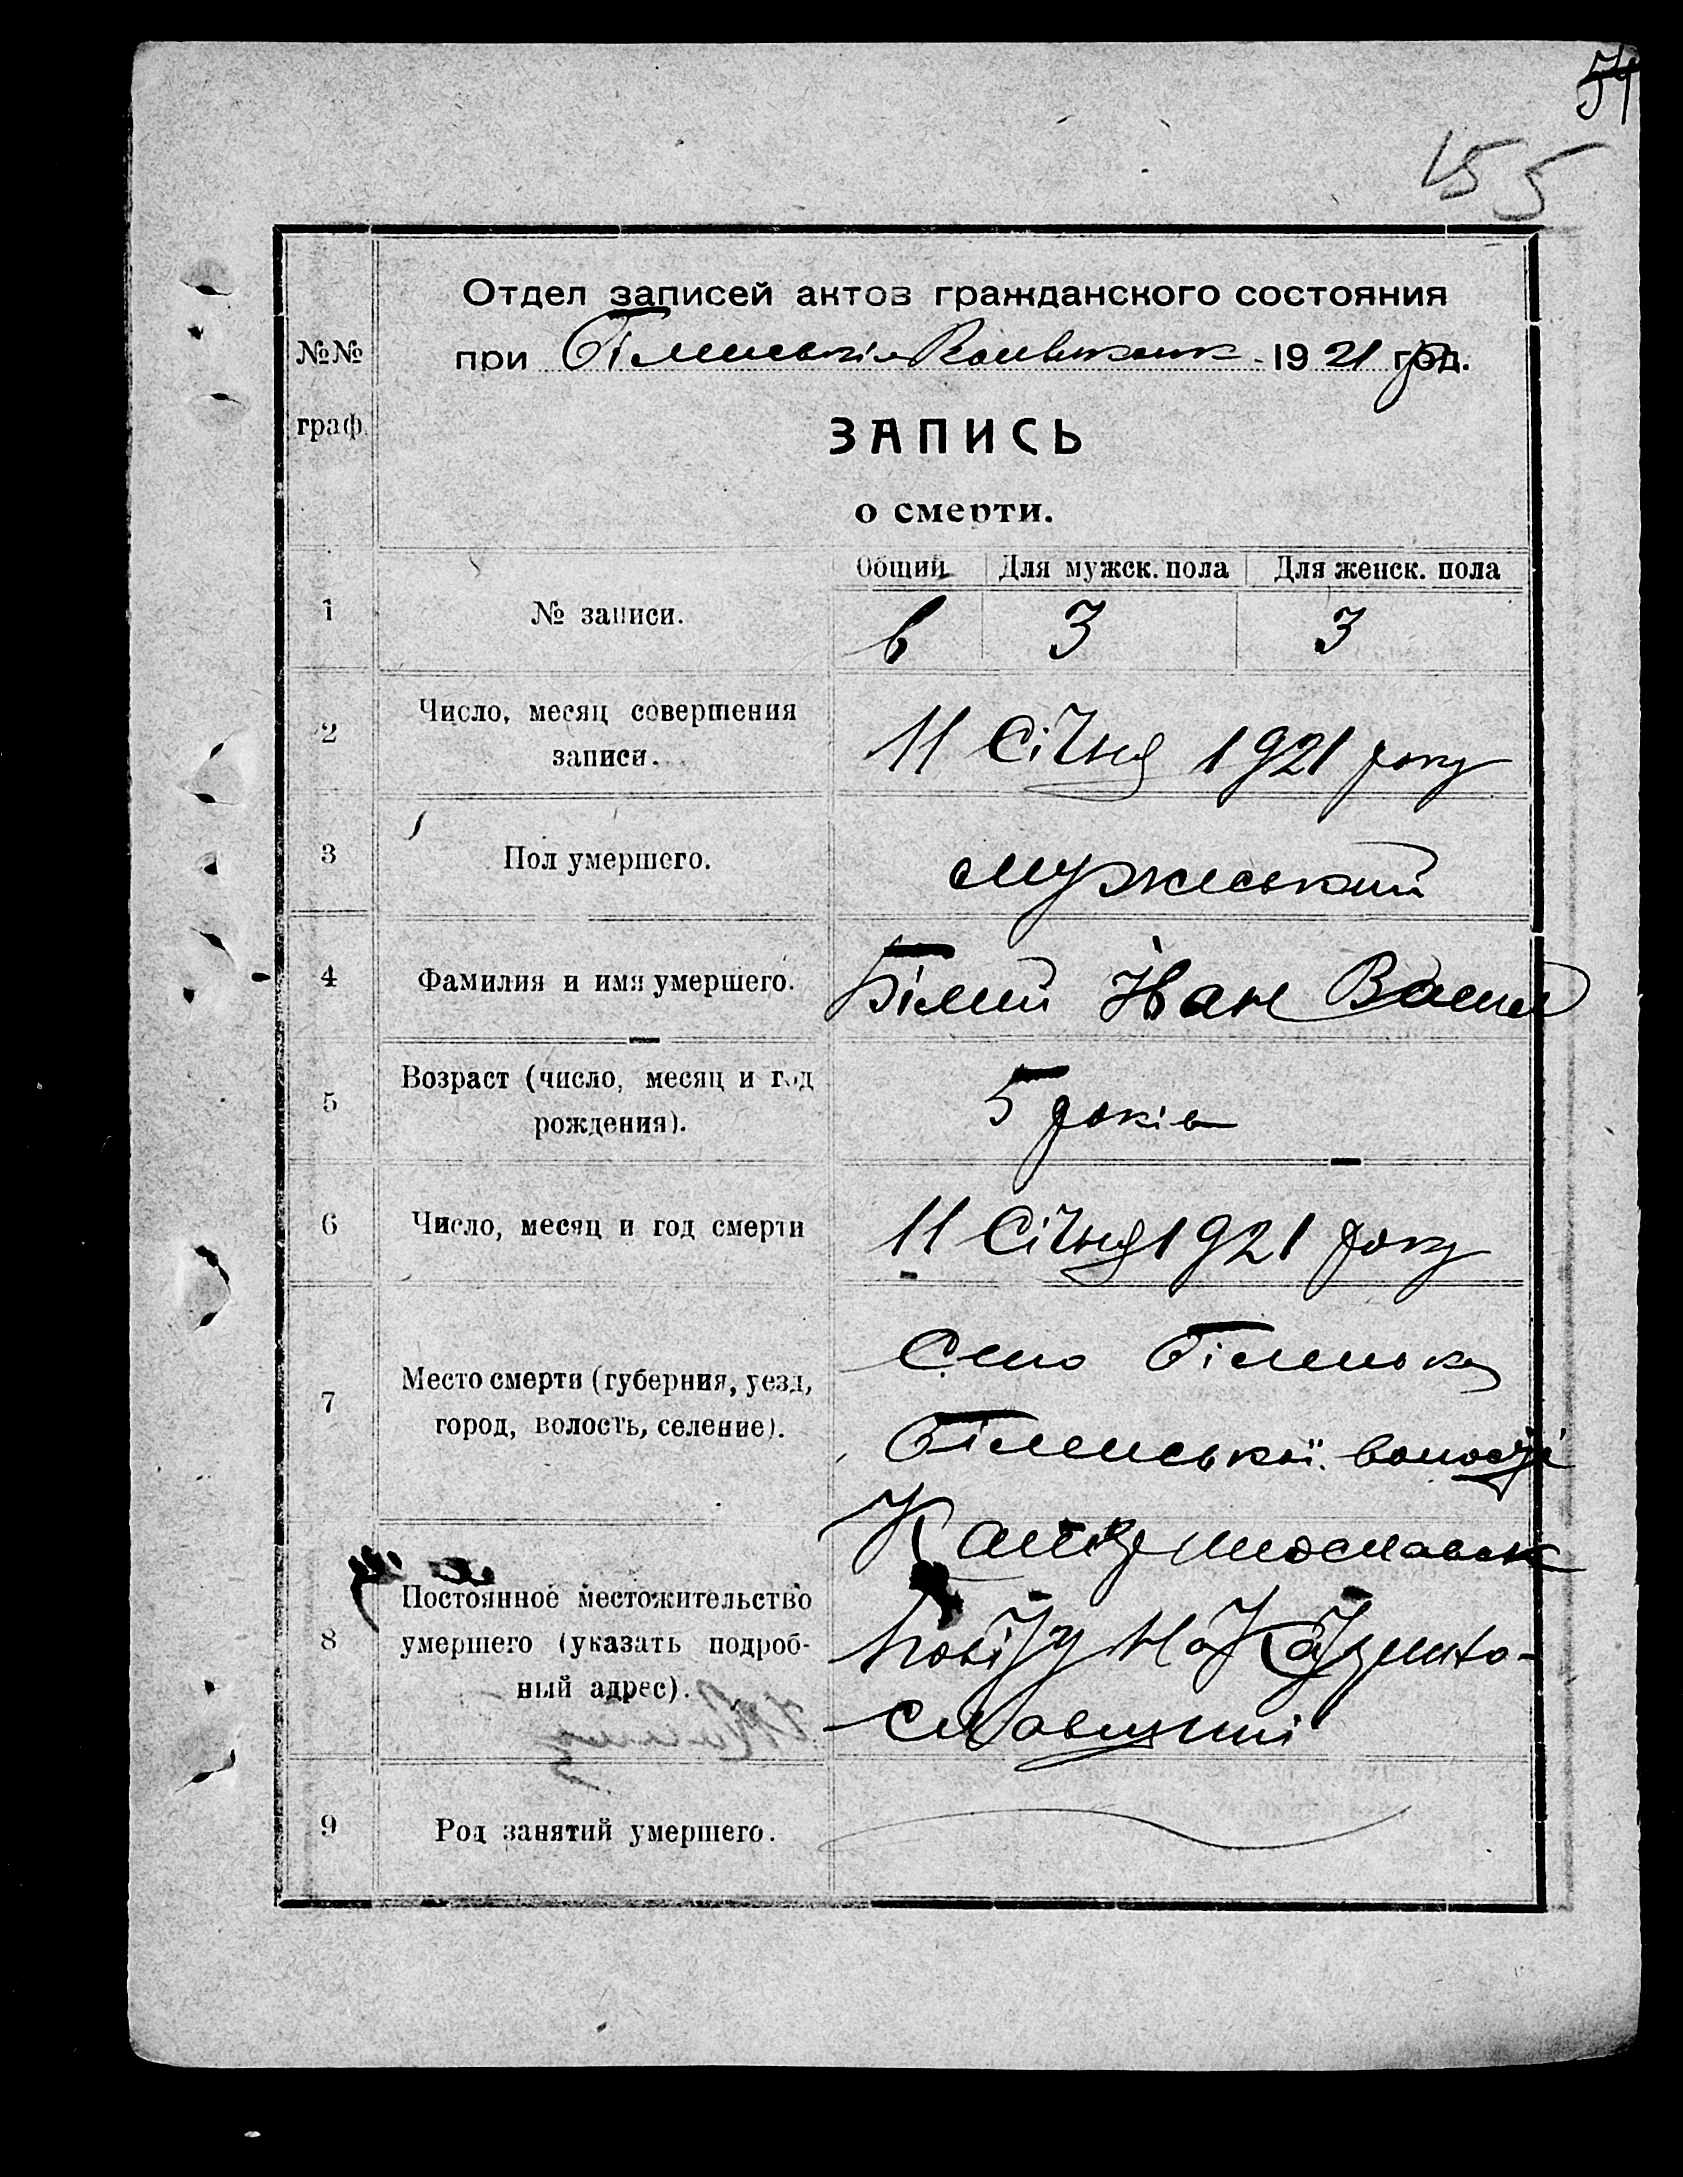 54
155
Отдел записей актов гражданского состояния
при Біленькім Волвиконк. 1921 год.
№№
граф.
ЗАПИСЬ
о смерти.
Общий Для мужск. пола Для женск. пола
1 № записи. 6 3 3
2 Число, месяц совершения
записи. 11 Січня 1921 року
3 Пол умершего. мужеський
4 Фамилия и имя умершего. Білий Йван Васил
5 Возраст (число, месяц и год
рождения). 5 років
6 Число, месяц и год смерти 11 Січня 1921 року
7 Место смерти (губерния, уезд,
город, волость, селение). Село Біленька
Біленської волости
8 Постоянное местожительство
умершего (указать подроб-
ный адрес). повіту на
славщині
9 Род занятий умершего.